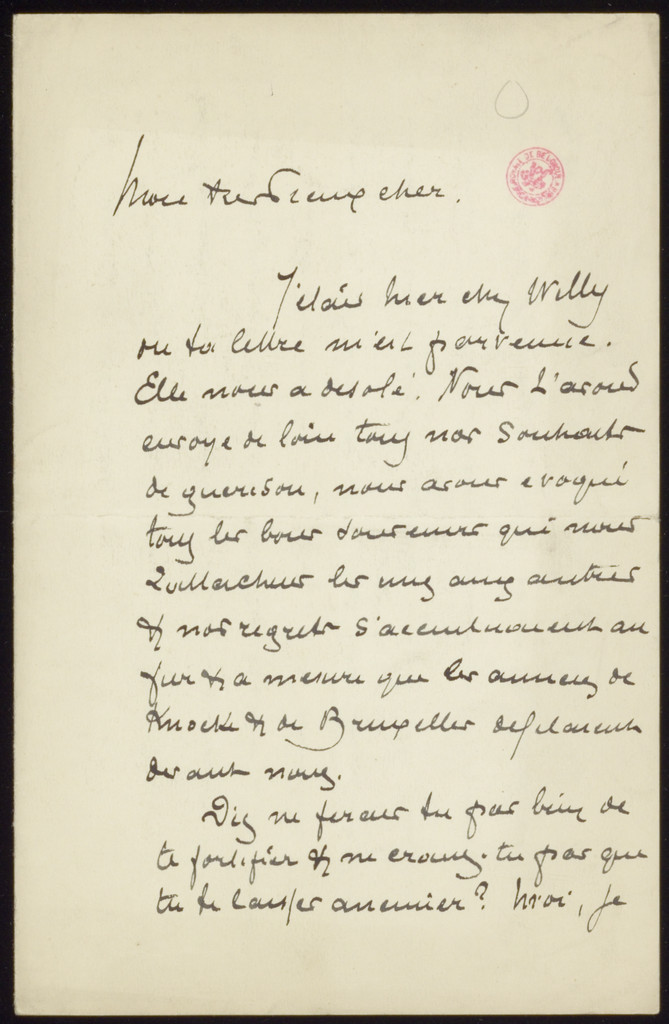 Mon tres vieux cher.
J'étais hier chez Willy
ou ta lettre m'est parvenue.
Elle nous a desolé. Nous t'avons
envoye de loin tous nos souhaits
de guerison, nous avons evoqué
tous les bons souvenirs qui nous
rattachent les uns aux autres
& nos regrets s'accentuaient au
fur & a mesure que les annees de
Knocke & de Bruxelles defilaient
devant nous.
Dis ne ferais tu pas bien de
te fortifier & ne crains-tu pas que
tu te laisses anemier? Moi, je